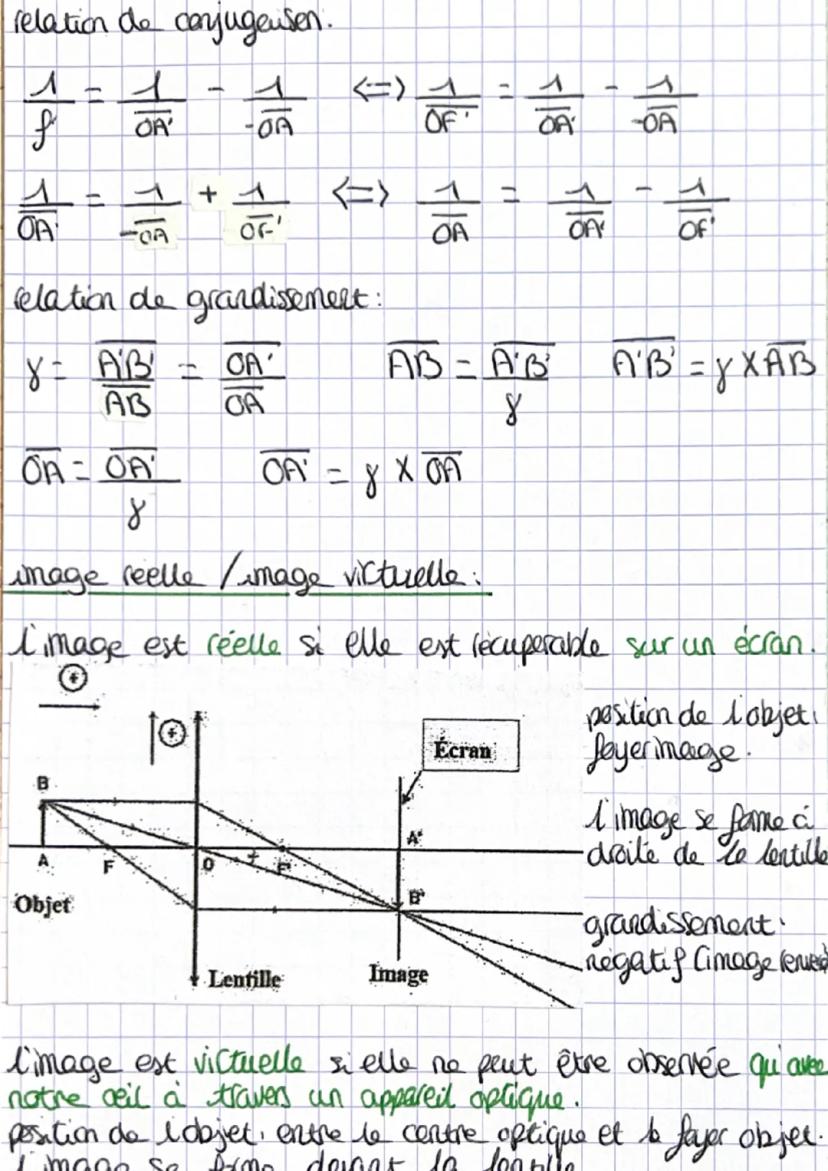 relation de conjugeusen.
1/f' = 1/OA' - 1/-OA <=> 1/OF' = 1/OA' - 1/-OA
1/OA' = 1/-OA + 1/OF' <=> 1/OA = 1/OA' - 1/OF'
relation de grandissement:
γ = A'B'/AB = OA'/OA AB = A'B'/γ A'B' = γ X AB
OA = OA'/γ OA' = γ X OA
image réelle / image virtuelle:
l'image est réelle si elle est récuperable sur un écran.
+
+
Écran
B
A'
A
F
O
F'
B'
Objet
Lentille
Image
position de l'objet:
foyer image.
l'image se forme à
droite de la lentille
grandissement:
négatif (image
l'image est virtuelle si elle ne peut être observée qu'avec
notre œil à travers un appareil optique.
position de l'objet: entre le centre optique et le foyer objet.
l'image se forme devant la lentille